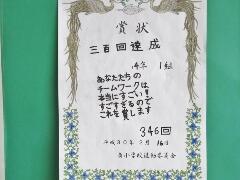 賞状
三百回達成
4年 1組
あなたたちの
チームワークは
本当にすごい!
すごすぎるので
これを賞します
346回
平成30年2月16日
小学校運動委員会